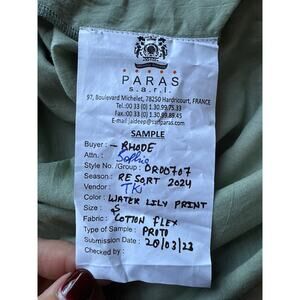 PARAS
s.a.r.l.
97, Boulevard Michelet, 78250 Hardricourt, FRANCE
Tel.:00 33 (0) 1.30.99.75.33
Fax:00 33 (0) 1.30.99.89.45
E-mail jaideep@sarlparas.com
SAMPLE
Buyer : - RHODE
Attn. : Sophie
Style No. / Group : DR00707
Season : RESORT 2024
Vendor : TKS
Color : WATER LILY PRINT
Size : S
Fabric : COTTON FLEX
Type of Sample : PROTO
Submission Date : 20/03/23
Checked by :